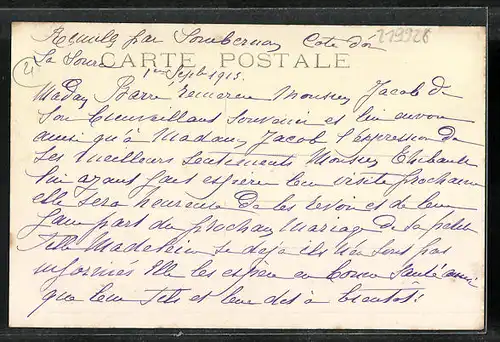 Remilly par Sombernon Cote d'or 219928
La Source CARTE POSTALE
21
1er Sept 1913.
Madame Barre remercie Monsieur Jacob de
son bienveillant souvenir et lui envoie
ainsi qu'à Madame Jacob l'expression de
ses meilleurs sentiments Monsieur Thibault
lui ayant fait espérer leur visite prochaine
elle sera heureuse de les revoir et de leur
faire part du prochain Mariage de sa petite
fille Madeleine si déjà ils n'en sont pas
informés Elle les espère en bonne Santé ainsi
que leur fils et leur dit à bientôt!